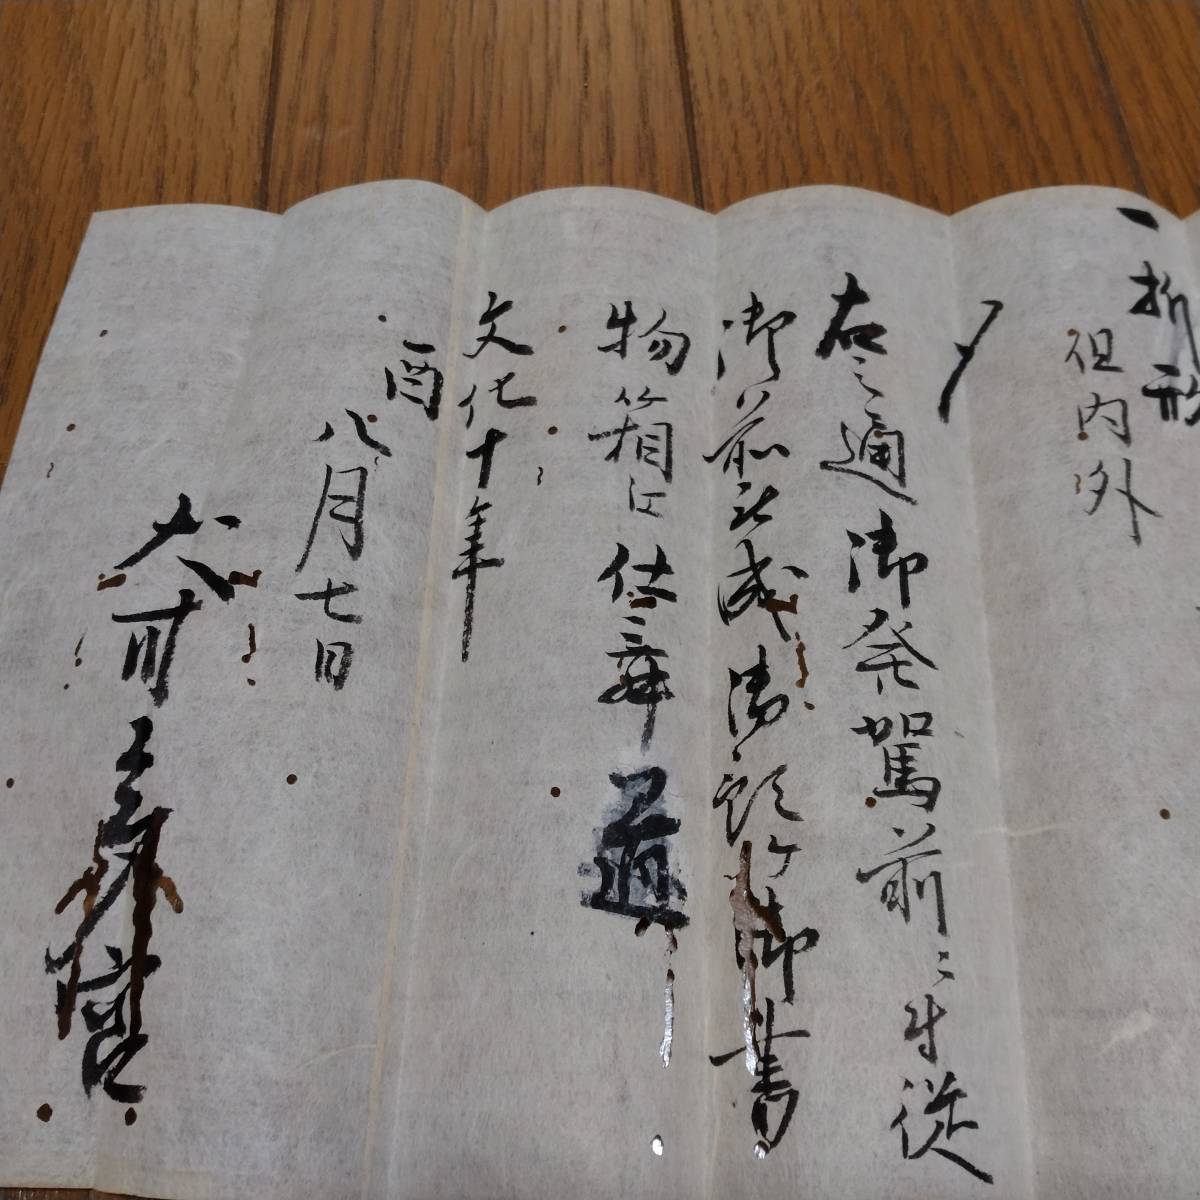 一折形
但内外
〆
右之通御発駕前ニ付従
御前被成御預ケ御書
物箱江仕舞置
文化十年
酉
八月七日